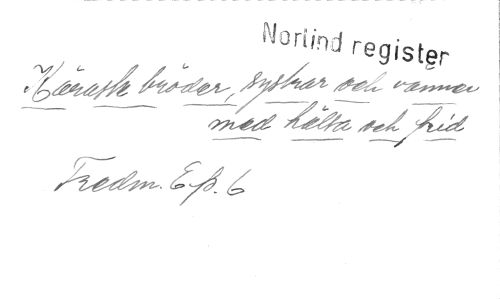 Norlind register
Käraste bröder, systrar och vänner
med hälsa och frid
Fredm. Ep. 6